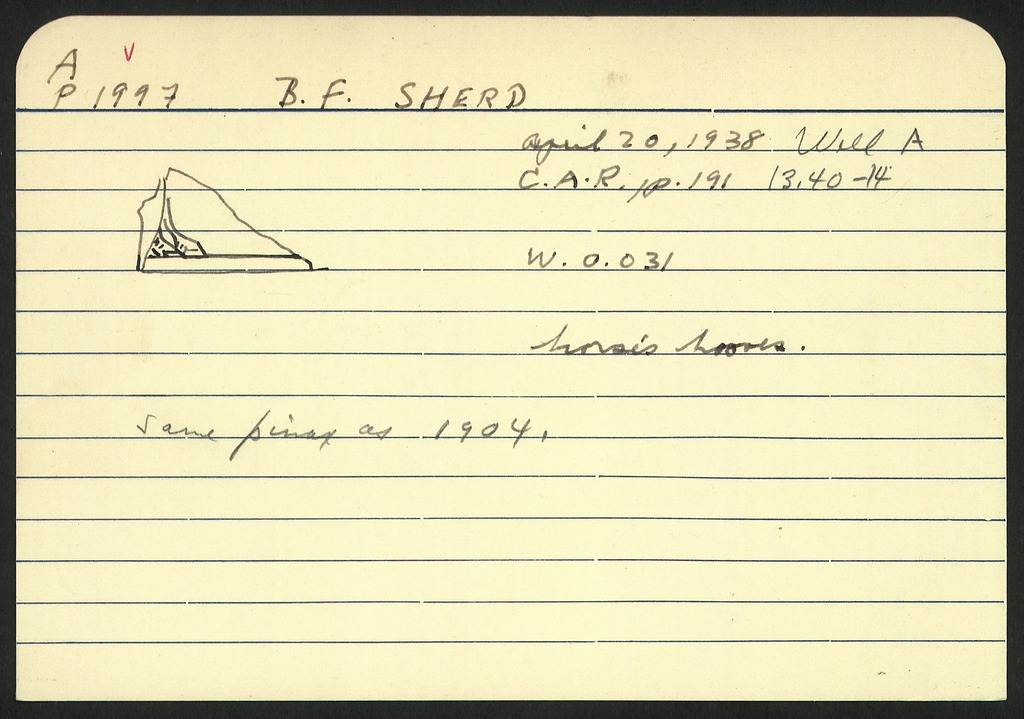 A v
P 1997 B. F. SHERD
april 20, 1938 Well A
C.A.R. p. 191 13.40 -14
W. 0.031
horse's hooves.
Same pinax as 1904.